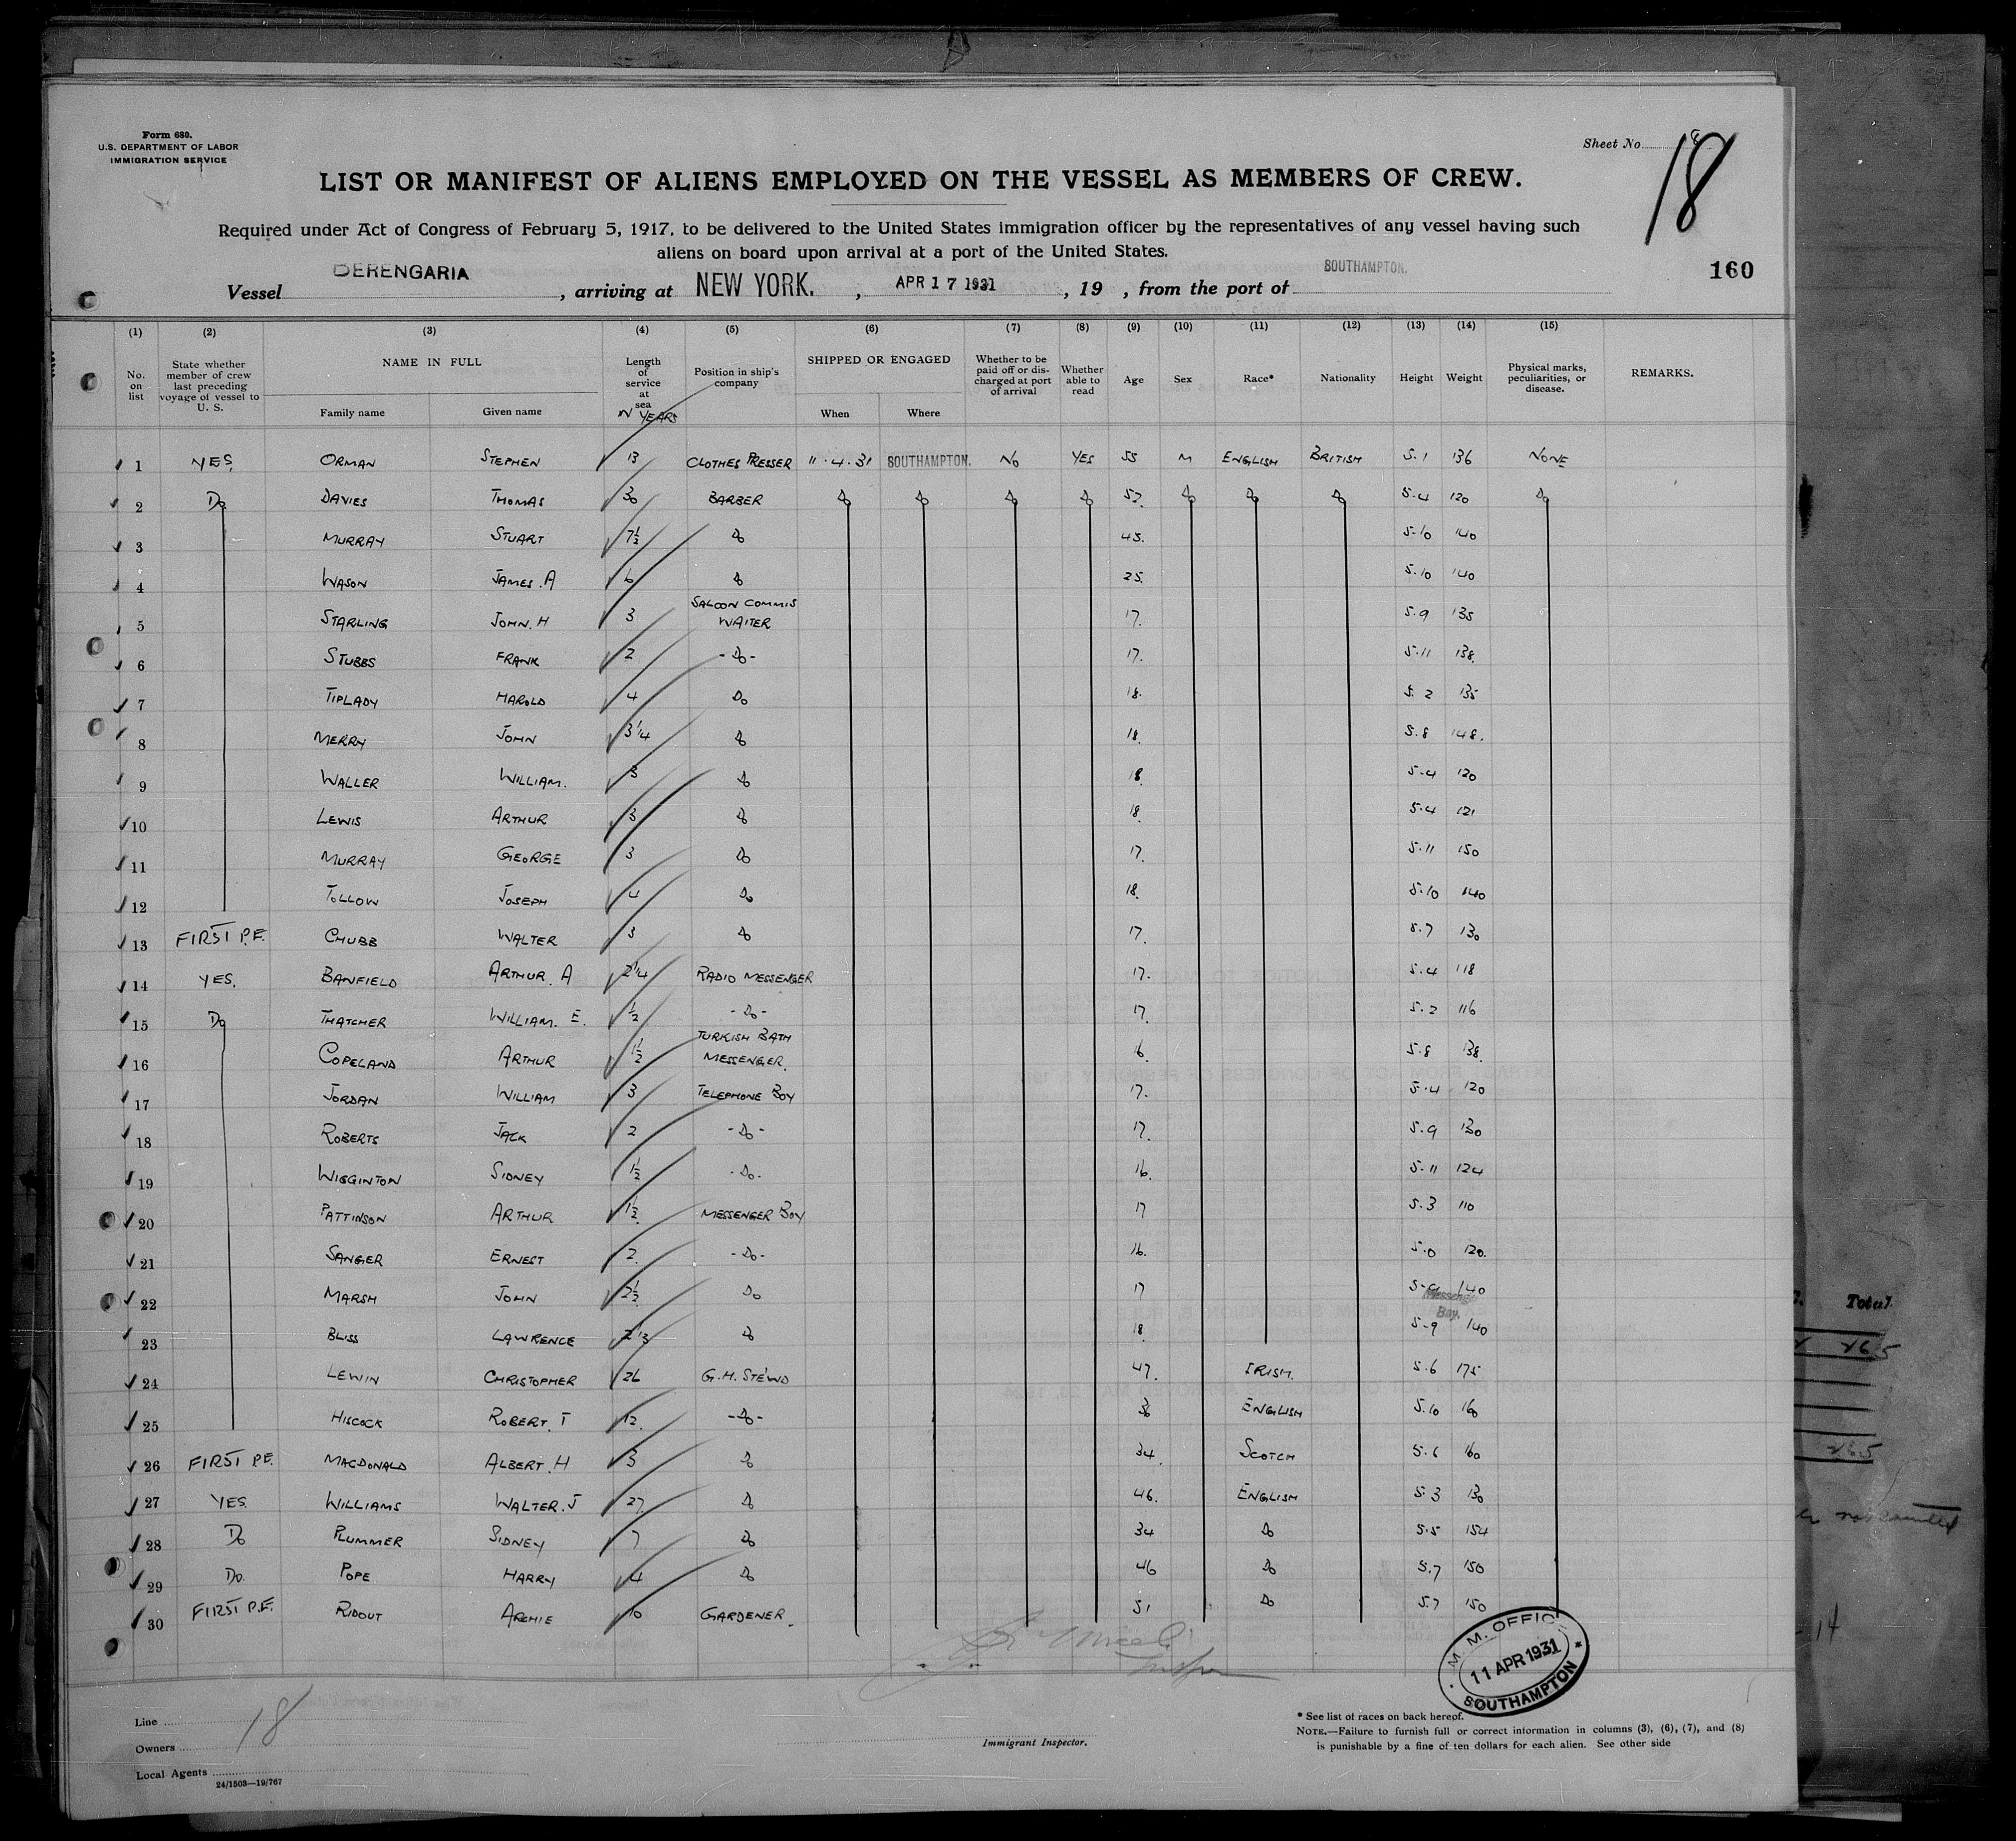 Form 680.
U.S. DEPARTMENT OF LABOR
IMMIGRATION SERVICE
Sheet No. 8
18
LIST OR MANIFEST OF ALIENS EMPLOYED ON THE VESSEL AS MEMBERS OF CREW.
Required under Act of Congress of February 5, 1917, to be delivered to the United States immigration officer by the representatives of any vessel having such
aliens on board upon arrival at a port of the United States.
160
Vessel BERENGARIA, arriving at NEW YORK. , APR 17 1931, 19 , from the port of SOUTHAMPTON.
(1) (2) (3) (4) (5) (6) (7) (8) (9) (10) (11) (12) (13) (14) (15)
No. on list
State whether member of crew last preceding voyage of vessel to U. S.
NAME IN FULL
Family name
Given name
Length of service at sea
IN YEARS
Position in ship's company
SHIPPED OR ENGAGED
When
Where
Whether to be paid off or discharged at port of arrival
Whether able to read
Age
Sex
Race*
Nationality
Height
Weight
Physical marks, peculiarities, or disease.
REMARKS.
1 YES ORMAN STEPHEN 13 CLOTHES PRESSER 11.4.31 SOUTHAMPTON. NO YES 55 M ENGLISH BRITISH 5.1 136 NONE
2 Do DAVIES THOMAS 30 BARBER Do Do Do Do 52. Do Do Do 5.4 120 Do
3 MURRAY STUART 7½ Do 45. 5-10 140
4 WASON JAMES. A 6 Do 25. 5.10 140
5 STARLING JOHN. H 3 SALOON COMMIS WAITER 17. 5.9 135
6 STUBBS FRANK 2 -Do- 17. 5.11 138.
7 TIPLADY HAROLD 4 Do 18. 5.2 135
8 MERRY JOHN 3¼ Do 18. 5.8 148.
9 WALLER WILLIAM. 3 Do 18 5.4 120
10 LEWIS ARTHUR 3 Do 18. 5.4 121
11 MURRAY GEORGE 3 Do 17. 5.11 150
12 TOLLOW JOSEPH 4 Do 18. 5.10 140
13 FIRST P.E. CHUBB WALTER 3 Do 17. 5.7 130
14 YES. BANFIELD ARTHUR. A 2¼ RADIO MESSENGER 17. 5.4 118
15 Do THATCHER WILLIAM. E. ½ -Do- 17. 5.2 116
16 COPELAND ARTHUR 1½ TURKISH BATH MESSENGER. 16. 5.8 138.
17 JORDAN WILLIAM 3 TELEPHONE BOY 17. 5.4 120
18 ROBERTS JACK 2 -Do- 17. 5.9 130
19 WIGGINTON SIDNEY 1½ -Do. 16. 5.11 124
20 PATTINSON ARTHUR 1½ MESSENGER BOY 17 5.3 110
21 SANGER ERNEST 2 -Do- 16. 5.0 120.
22 MARSH JOHN 2½ Do 17 140
Messenger Boy.
23 BLISS LAWRENCE 2⅓ Do 18 5-9 140
24 LEWIN CHRISTOPHER 26 G.H. STEWD 47. IRISH. 5.6 175
25 HISCOCK ROBERT. T 12. -Do- 36 ENGLISH 5.10 160
26 FIRST P.E. MACDONALD ALBERT. H 3 Do 34. SCOTCH 5.6 160
27 YES WILLIAMS WALTER. J 27 Do 46. ENGLISH 5.3 130
28 Do PLUMMER SIDNEY 7 Do 34 Do 5.5 154
29 Do. POPE HARRY 4 Do 46 Do 5.7 150
30 FIRST P.E. RIDOUT ARCHIE 10 GARDENER. 51 Do 5.7 150
M. M. OFFICE
11 APR 1931
SOUTHAMPTON
Line
18
Owners
Local Agents
24/1503—19/767
Immigrant Inspector.
* See list of races on back hereof.
NOTE.—Failure to furnish full or correct information in columns (3), (6), (7), and (8)
is punishable by a fine of ten dollars for each alien. See other side
Total.
265
265
14